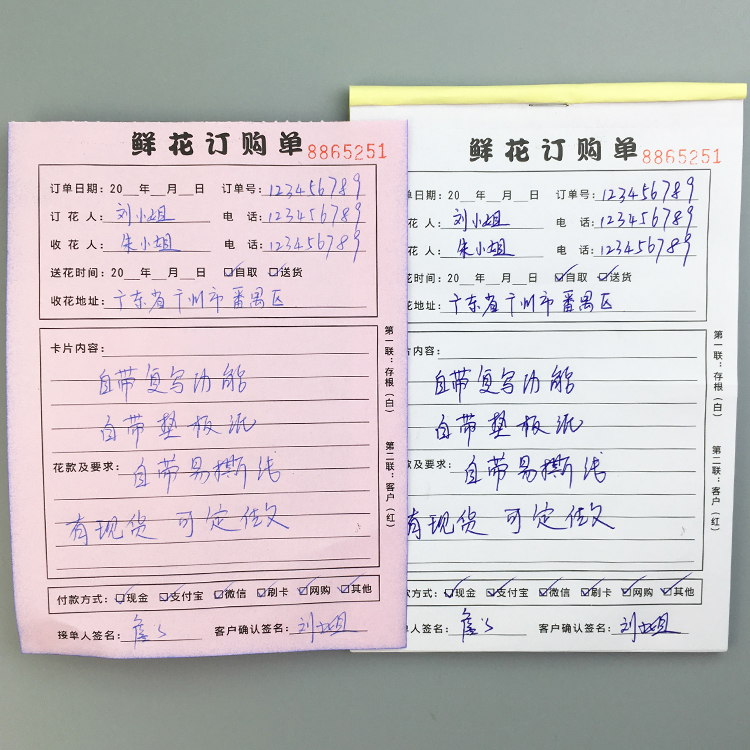 鲜花订购单 8865251
订单日期: 20__年__月__日 订单号: 123456789
订花人: 刘小姐 电话: 123456789
收花人: 朱小姐 电话: 123456789
送花时间: 20__年__月__日 ☑自取 ☑送货
收花地址: 广东省广州市番禺区
卡片内容:
自带复写功能
自带垫板纸
花款及要求: 自带易撕线
有现货 可定做
付款方式: ☑现金 ☑支付宝 ☑微信 ☑刷卡 ☑网购 ☑其他
接单人签名: 客户确认签名: 刘小姐
第一联：存根（白）
第二联：客户（红）
鲜花订购单 8865251
单日期: 20__年__月__日 订单号: 123456789
花人: 刘小姐 电话: 123456789
花人: 朱小姐 电话: 123456789
花时间: 20__年__月__日 ☑自取 ☑送货
花地址: 广东省广州市番禺区
片内容:
自带复写功能
自带垫板纸
款及要求: 自带易撕线
有现货 可定做
款方式: ☑现金 ☑支付宝 ☑微信 ☑刷卡 ☑网购 ☑其他
单人签名: 客户确认签名: 刘小姐
第一联：存根（白）
第二联：客户（红）